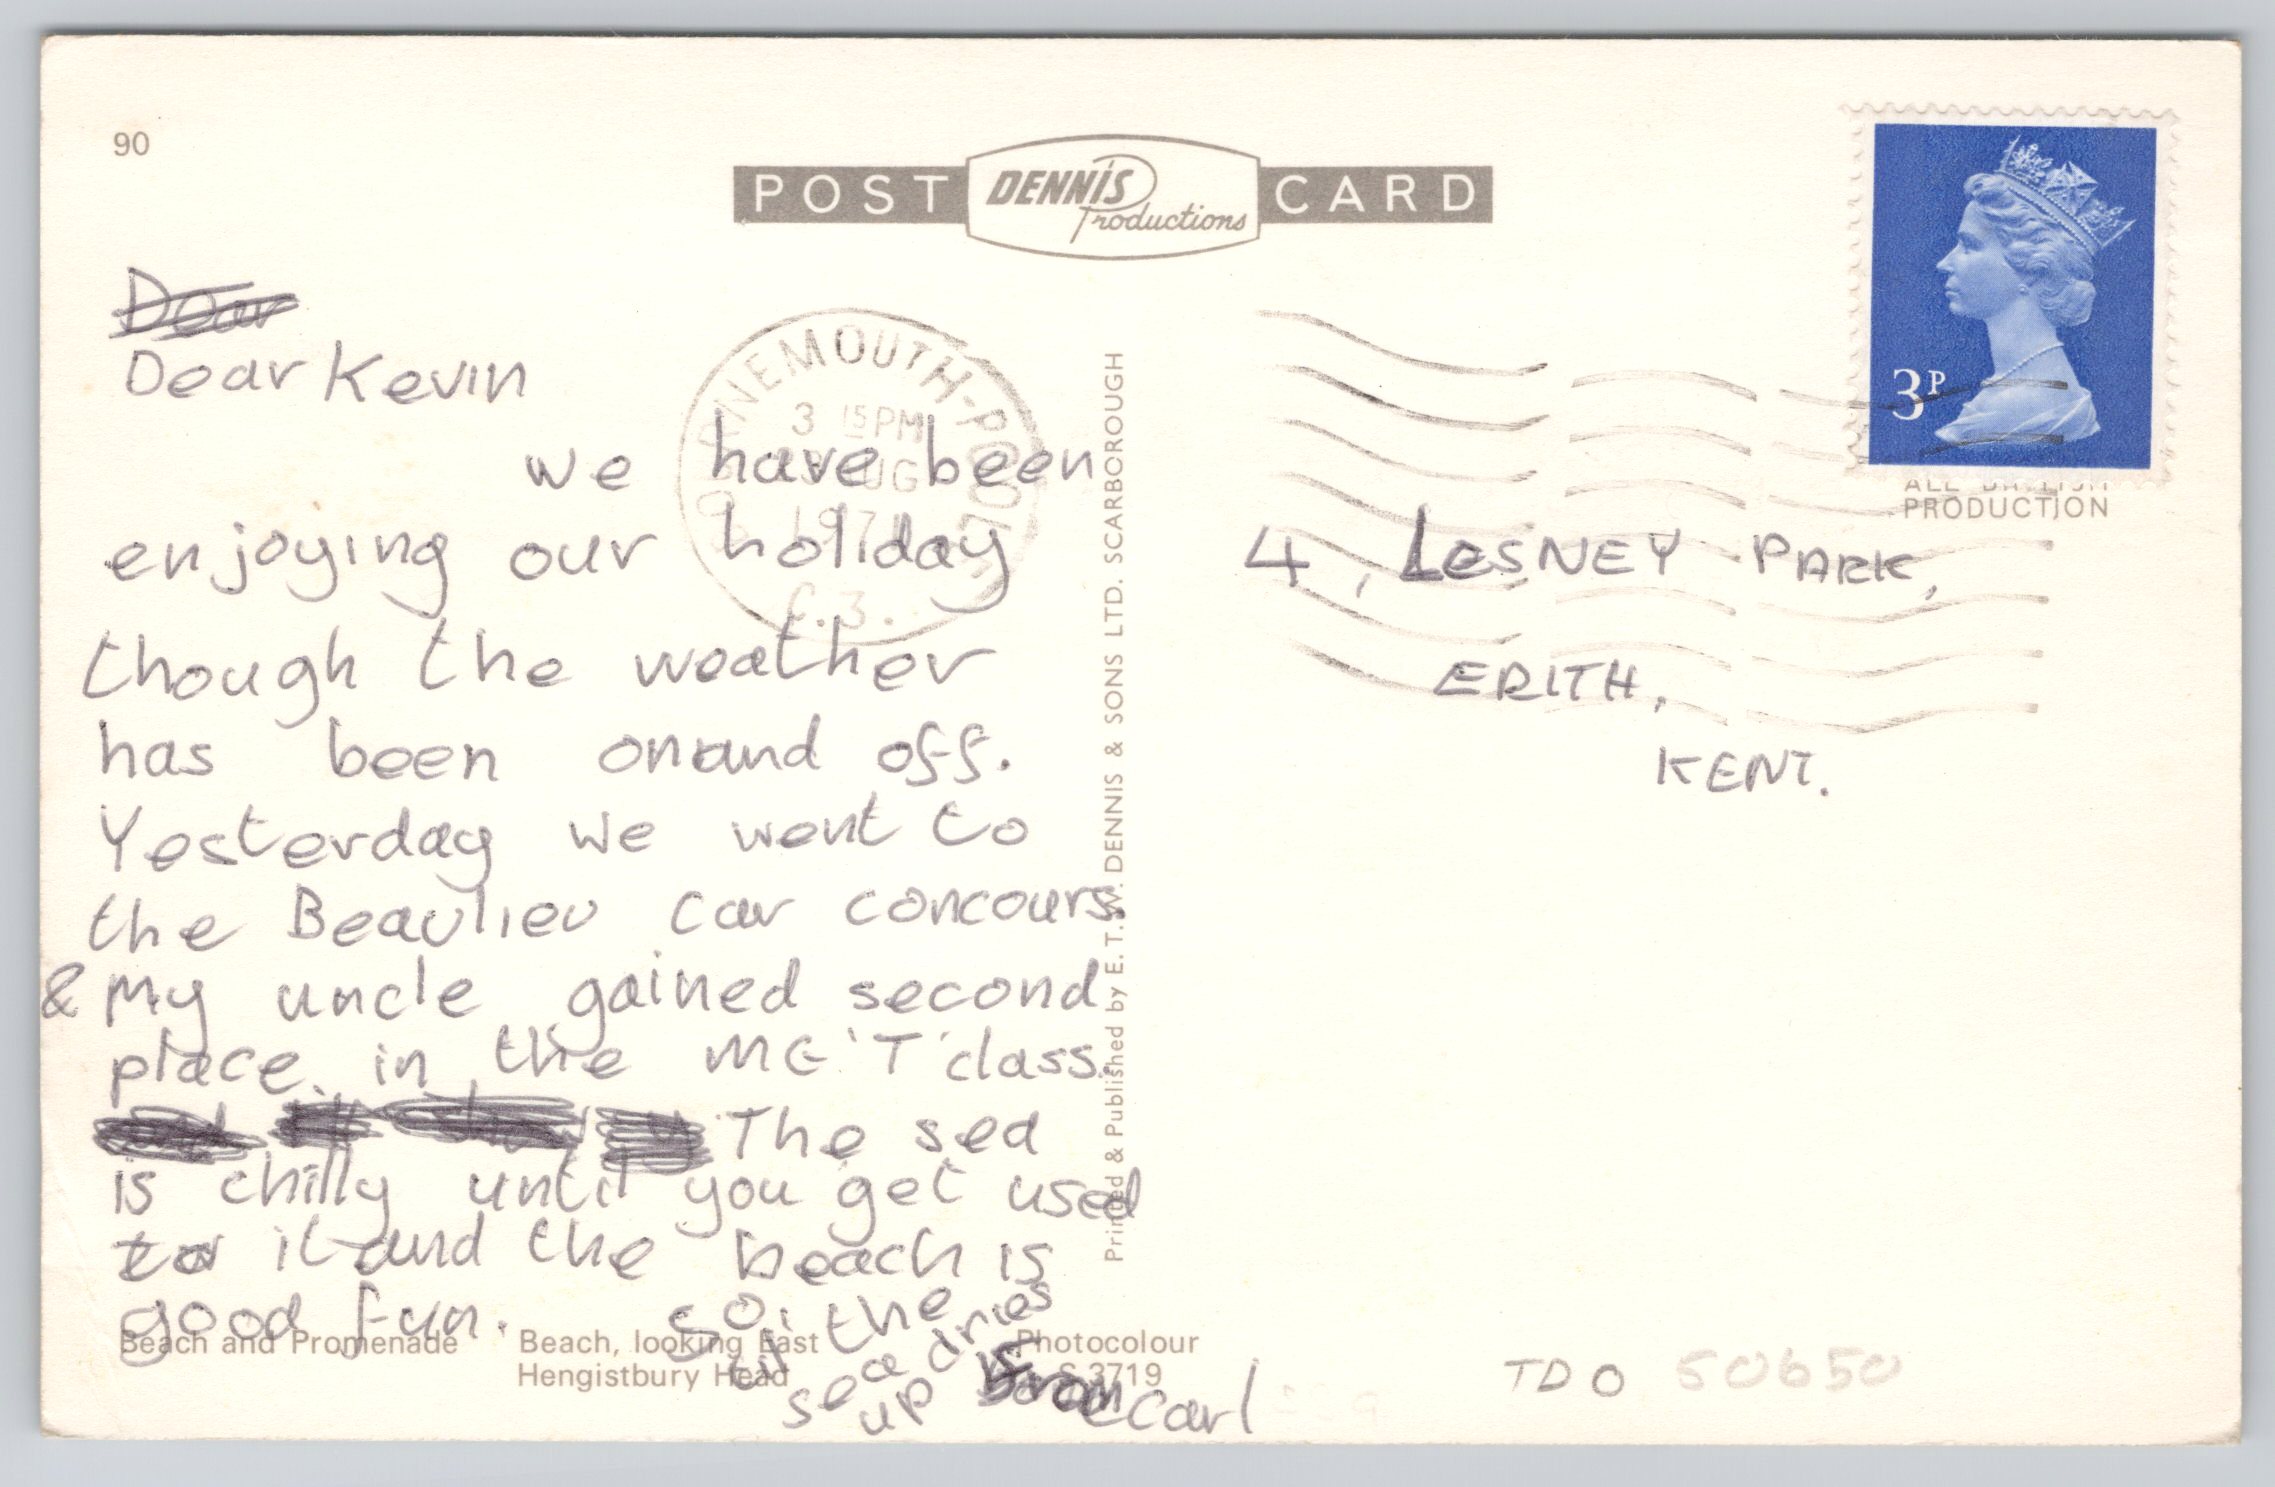 90
POST DENNIS Productions CARD
3P
ALL BRITISH
PRODUCTION
BOURNEMOUTH-POOLE
3 15PM
AUG
197
Dear
Dear Kevin
we have been
enjoying our holiday
though the weather
has been on and off.
Yesterday we went to
the Beaulieu car concours.
& My uncle gained second
place in the MG 'T' class.
The sea
is chilly until you get used
to it and the beach is
good fun. So, the
til sea dries
up
Carl
4, LESNEY PARK,
ERITH,
KENT.
Printed & Published by E. T. W. DENNIS & SONS LTD. SCARBOROUGH
Beach and Promenade Beach, looking East Photocolour
Hengistbury Head S.3719
TDO 50650